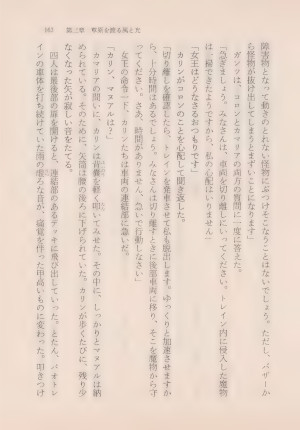 162　第二章　寒震を渡る風と光
障害物となって動きのとれない怪物にぶつけそこなうことはないでしょう。ただし、バザーか
ら怪物が抜け出してしまうとまずいことになります」
　ガンマは、コロンとカマリアの両方の質問に一度に答えた。
「急ぎましょう。みなさんは、車両の切り離しにいってください。トレイン内に侵入した魔物
は一掃できたようですから、私の心配はいりません」
「女王はどうなさるおつもりです」
　カリンがガロンのことを心配して聞き返した。
「切り離しを確認したら、トレインを発車させて私も脱出します。ゆっくりと加速させますか
ら、十分時間はあるでしょう。みなさんは切り離すときに後部車両に移り、そこを魔物から守
ってください。さあ、時間がありません。急いで行動しなさい」
　女王の命令一下、カリンたちは車両の連結部に急いだ。
「カリン、マヌアルは？」
　カマリアの問いに、カリンは背嚢を軽く叩いてみせた。その中に、しっかりとマヌアルは納
められている。そのために、矢筒は腰の後ろに下げられていた。カリンが歩くたびに、残り少
なくなった矢が寂しい音をたてる。
　四人は最後部の扉を開けると、連結部にあるデッキに飛び出していった。とたん、バオトレ
インの車体を打ち続けていた雨の緩んだ音が、痛覚を伴った甲高いものに変わった。叩きつけ